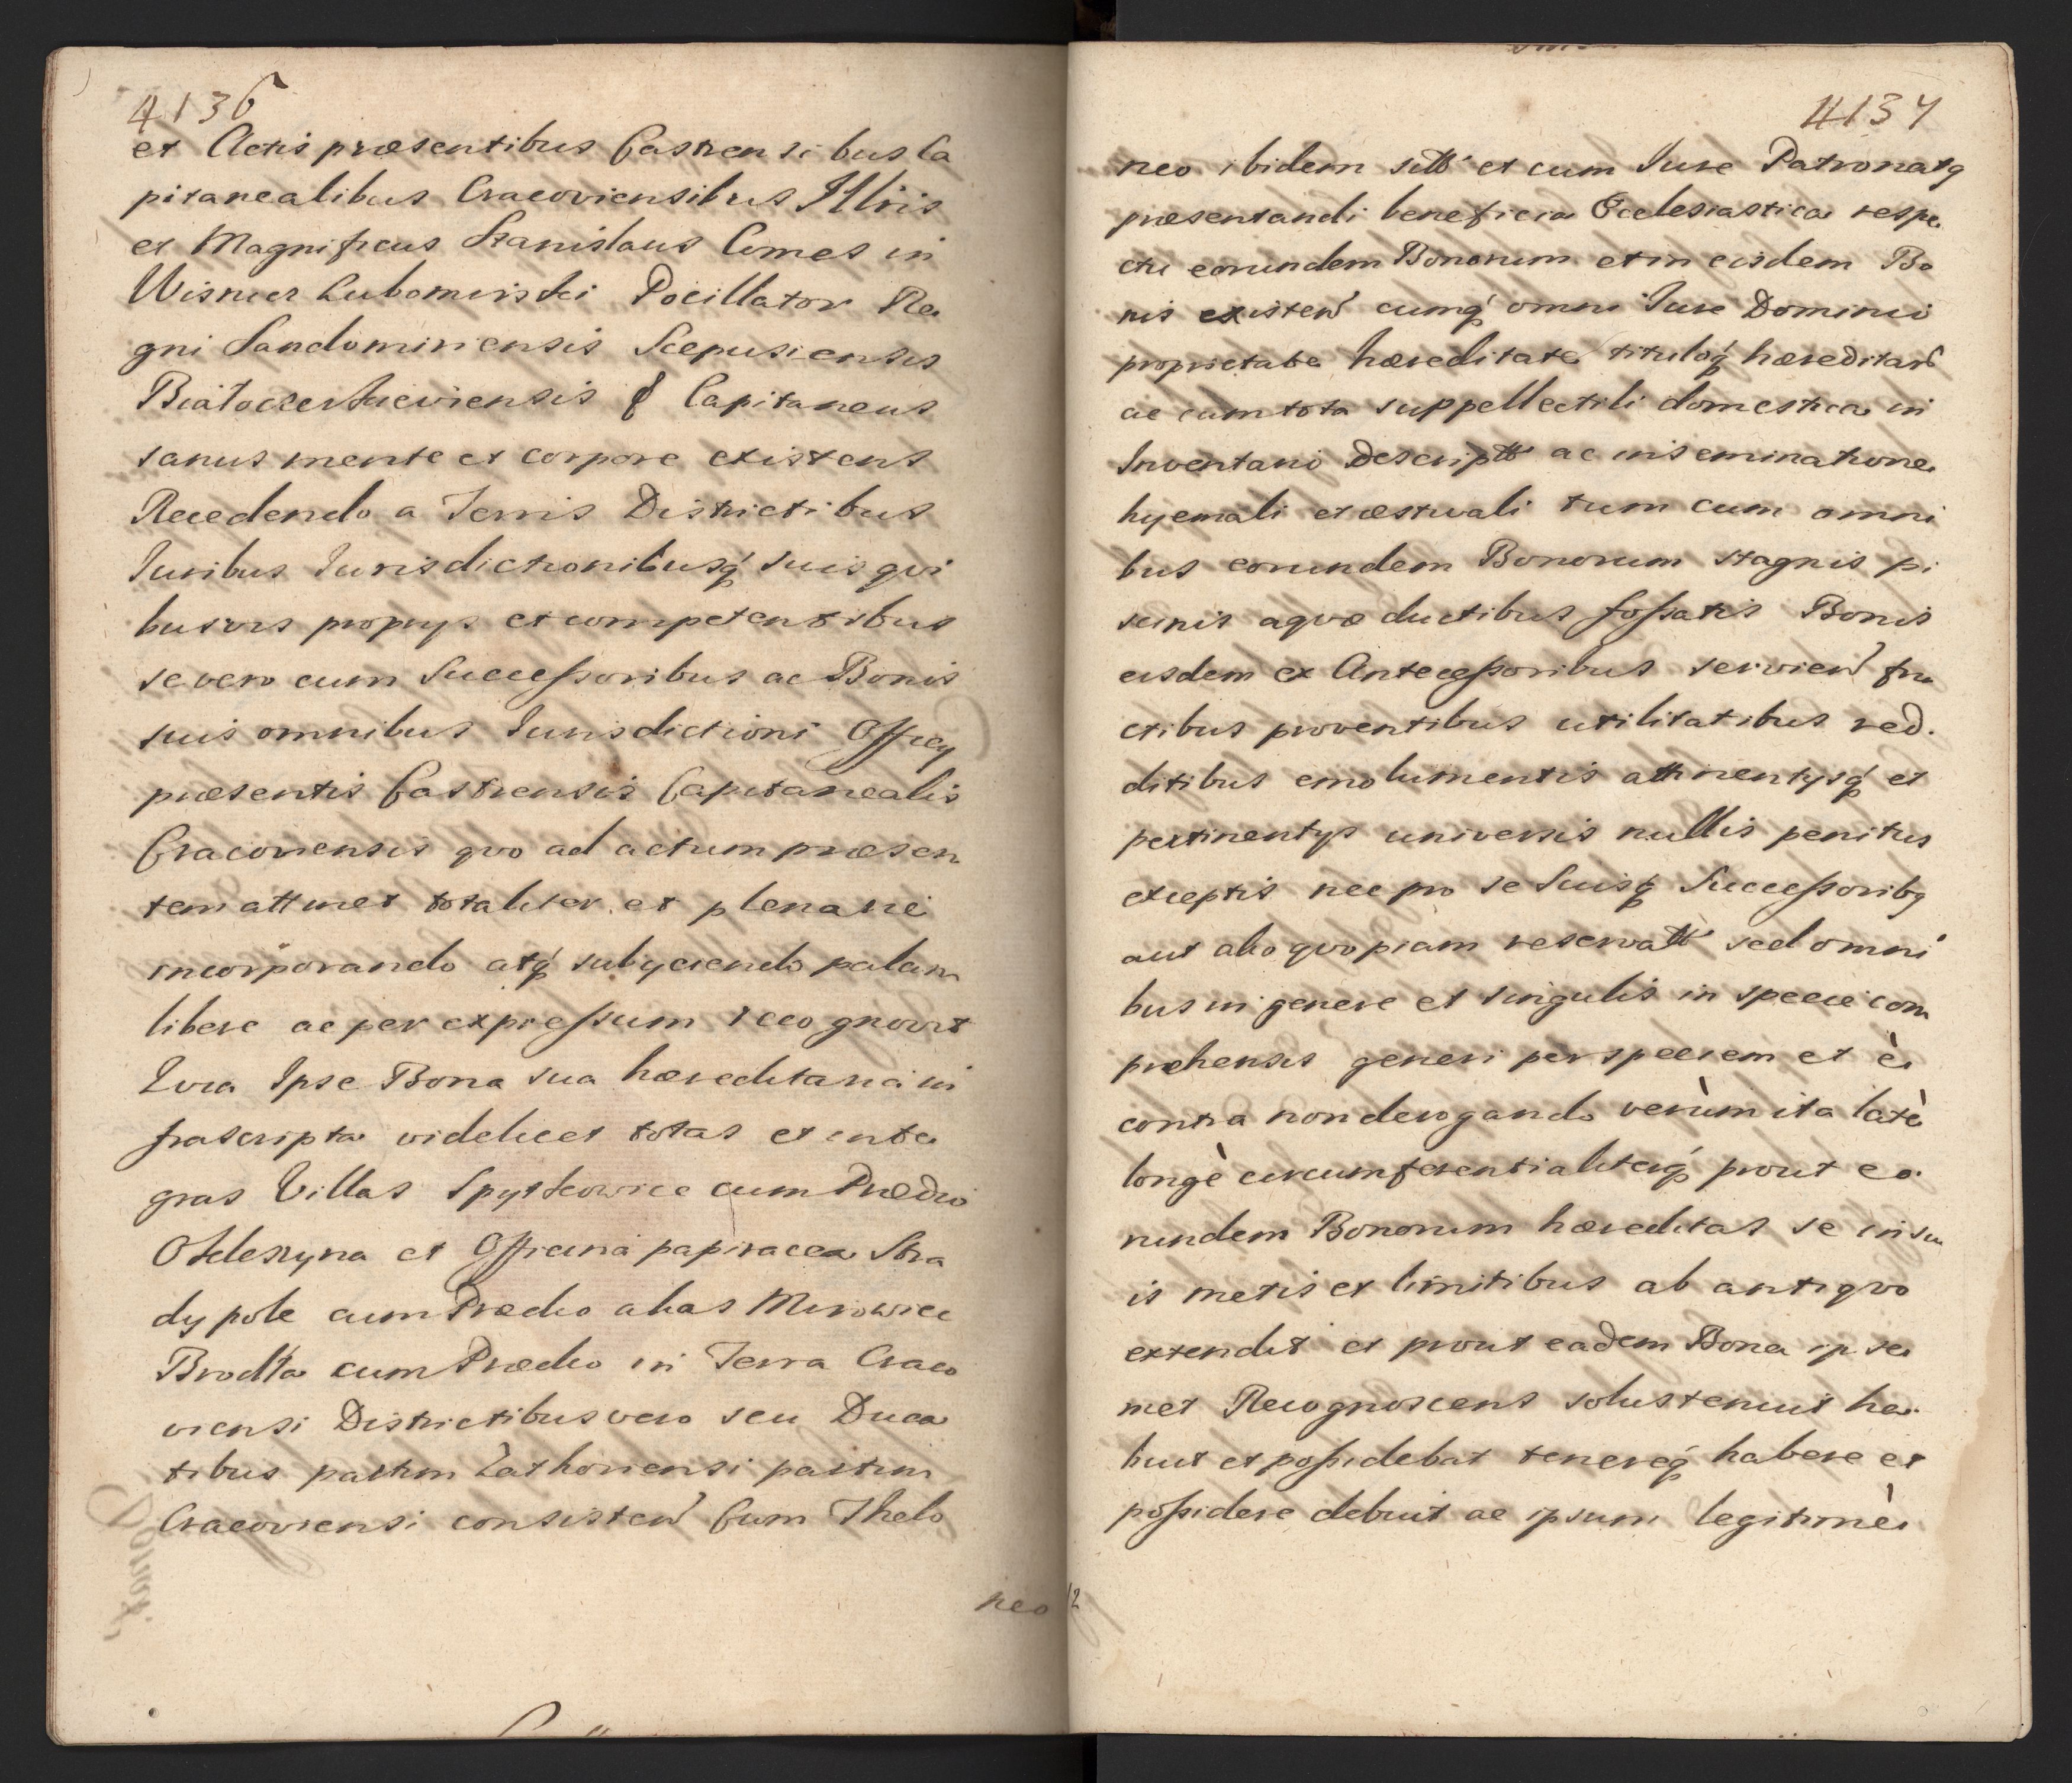 4136
et Actis præsentibus Castrensibus Ca
pitanealibus Cracoviensibus Illris
et Magnificus Stanislaus Comes in
Wisnicz Lubomirski Pocillator Re
gni Sandomiriensis Scepusiensis
Białocerkieviensis & Capitaneus
sanus mente et corpore existens
Recedendo a Terris Districtibus
Iuribus Iurisdictionibusq́ suis qvi
busvis proprys et competentibus
se vero cum Successoribus ac Bonis
suis omnibus Iurisdictioni Officy
præsentis Castrensis Capitanealis
Cracoviensis qvo ad actum præsen
tem attinet totaliter et plenarie
incorporando atq́ subyciendo palam
libere ac per expressum recognovit
Qvia Ipse Bona sua hæreditaria in
frascripta videlicet totas et inte
gras Villas Spytkowice cum Prædio
Oklesnyna et Officina papiracea Sta
dypole cum Prædio alias Mirowice
Brodła cum Prædio in Terra Craco
viensi Districtibus vero seu Duca
tibus partim Zathoriensi partim
Cracoviensi consisten̄ Cum Thelo
neo
4137
neo ibidem sitt̄ et cum Iure Patronatq
præsentandi beneficia Ecclesiastica respe
ctu eorundem Bonorum et in eisdem Bo
nis existen̄ cumq́ omni Iure Dominio
proprietate hæreditate tituloq́ hæreditar̄
ac cum tota suppellectili domestica in
Inventario descriptt̄ ac inseminatione
hyemali et æstivali tum cum omni
bus eorundem Bonorum stagnis pi
scinis aqvæ ductibus fossatis Bonis
eisdem ex Antecessoribus servien̄ fru
ctibus proventibus utilitatibus red.
ditibus emolumentis attinentysq́ et
pertinentys universis nullis penitus
exceptis nec pro se Suisq́ Successoribq
aut alio qvopiam reservatt̄ sed omni
bus in genere et singulis in specie com
prehensis generi per speciem et è
contra non derogando verùm ita latè
longè circumferentialiterq́ prout eo
rundem Bonorum hæreditas se in su
is metis et limitibus ab antiqvo
extendit et prout eadem Bona ipse
met Recognoscens solus tenuit ha
buit et possidebat tenereq́ habere et
possidere debuit ac ipsum legitimè